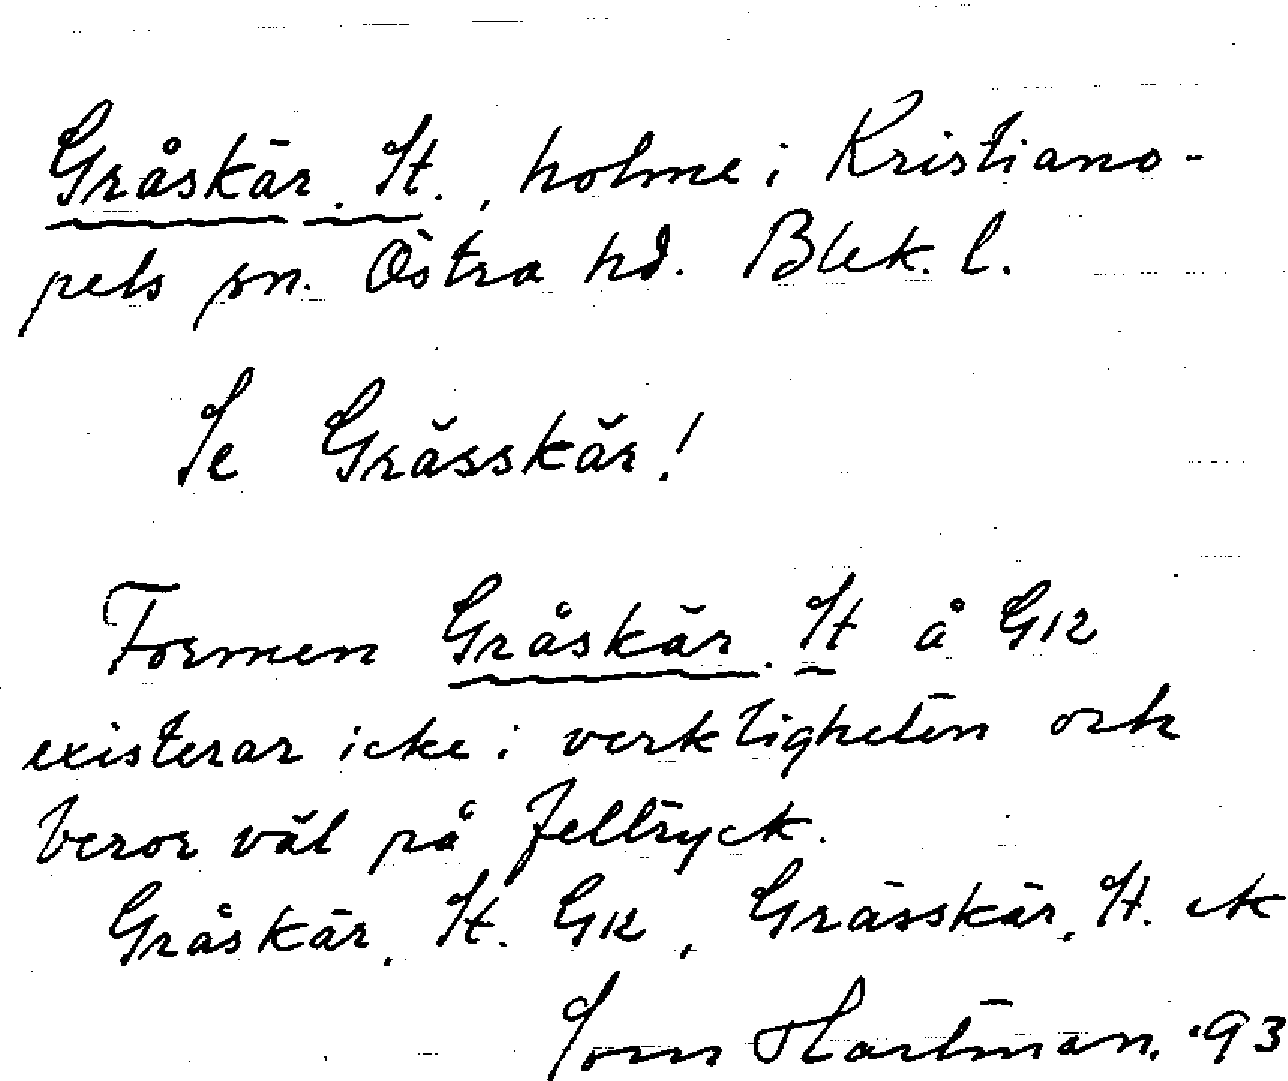 Gråskär, St., holme i Kristiano-
pels sn. Östra hd. Blek. l.
Se Grässkär!
Formen Gråskär, St å GK
existerar icke i verkligheten och
beror väl på feltryck.
Gråskär, St. GK, Grässkär, St. ek
Hartman. '93